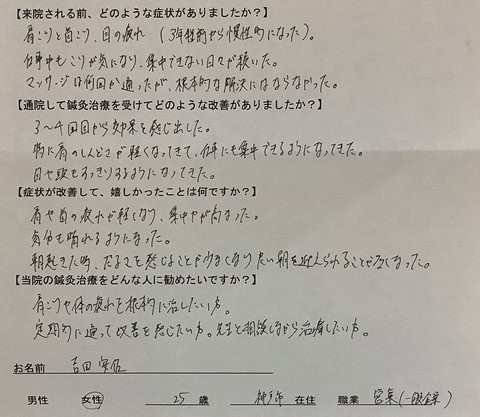 【来院される前、どのような症状がありましたか？】
肩こりと首こり、目の疲れ（3年程前から慢性的になった）。
仕事中もこりが気になり、集中できない日々が続いた。
マッサージは何回か通ったが、根本的な解決にはならなかった。
【通院して鍼灸治療を受けてどのような改善がありましたか？】
3〜4回目から効果を感じ出した。
特に肩のしんどさが軽くなってきて、仕事にも集中できるようになってきた。
目や頭もすっきりするようになってきた。
【症状が改善して、嬉しかったことは何ですか？】
肩や首の疲れが軽くなり、集中力が高まった。
気分も晴れるようになった。
朝起きた時、だるさを感じることが少なくなり良い朝を迎えられることが多くなった。
【当院の鍼灸治療をどんな人に勧めたいですか？】
肩こりや体の疲れを根本的に治したい方。
定期的に通って改善を感じたい方。先生と相談しながら治療したい方。
お名前 吉田
男性 女性 25 歳 神戸市 在住 職業 営業